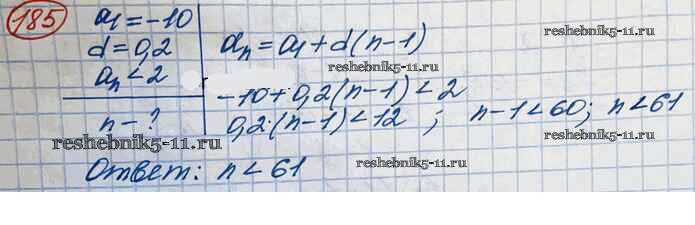 185
a₁ = -10
d = 0,2
aₙ < 2
n - ?
aₙ = a₁ + d(n-1)
reshebnik5-11.ru
-10 + 0,2(n-1) < 2
0,2·(n-1) < 12 ; n-1 < 60; n < 61
reshebnik5-11.ru
reshebnik5-11.ru
reshebnik5-11.ru
Ответ: n < 61
reshebnik5-11.ru